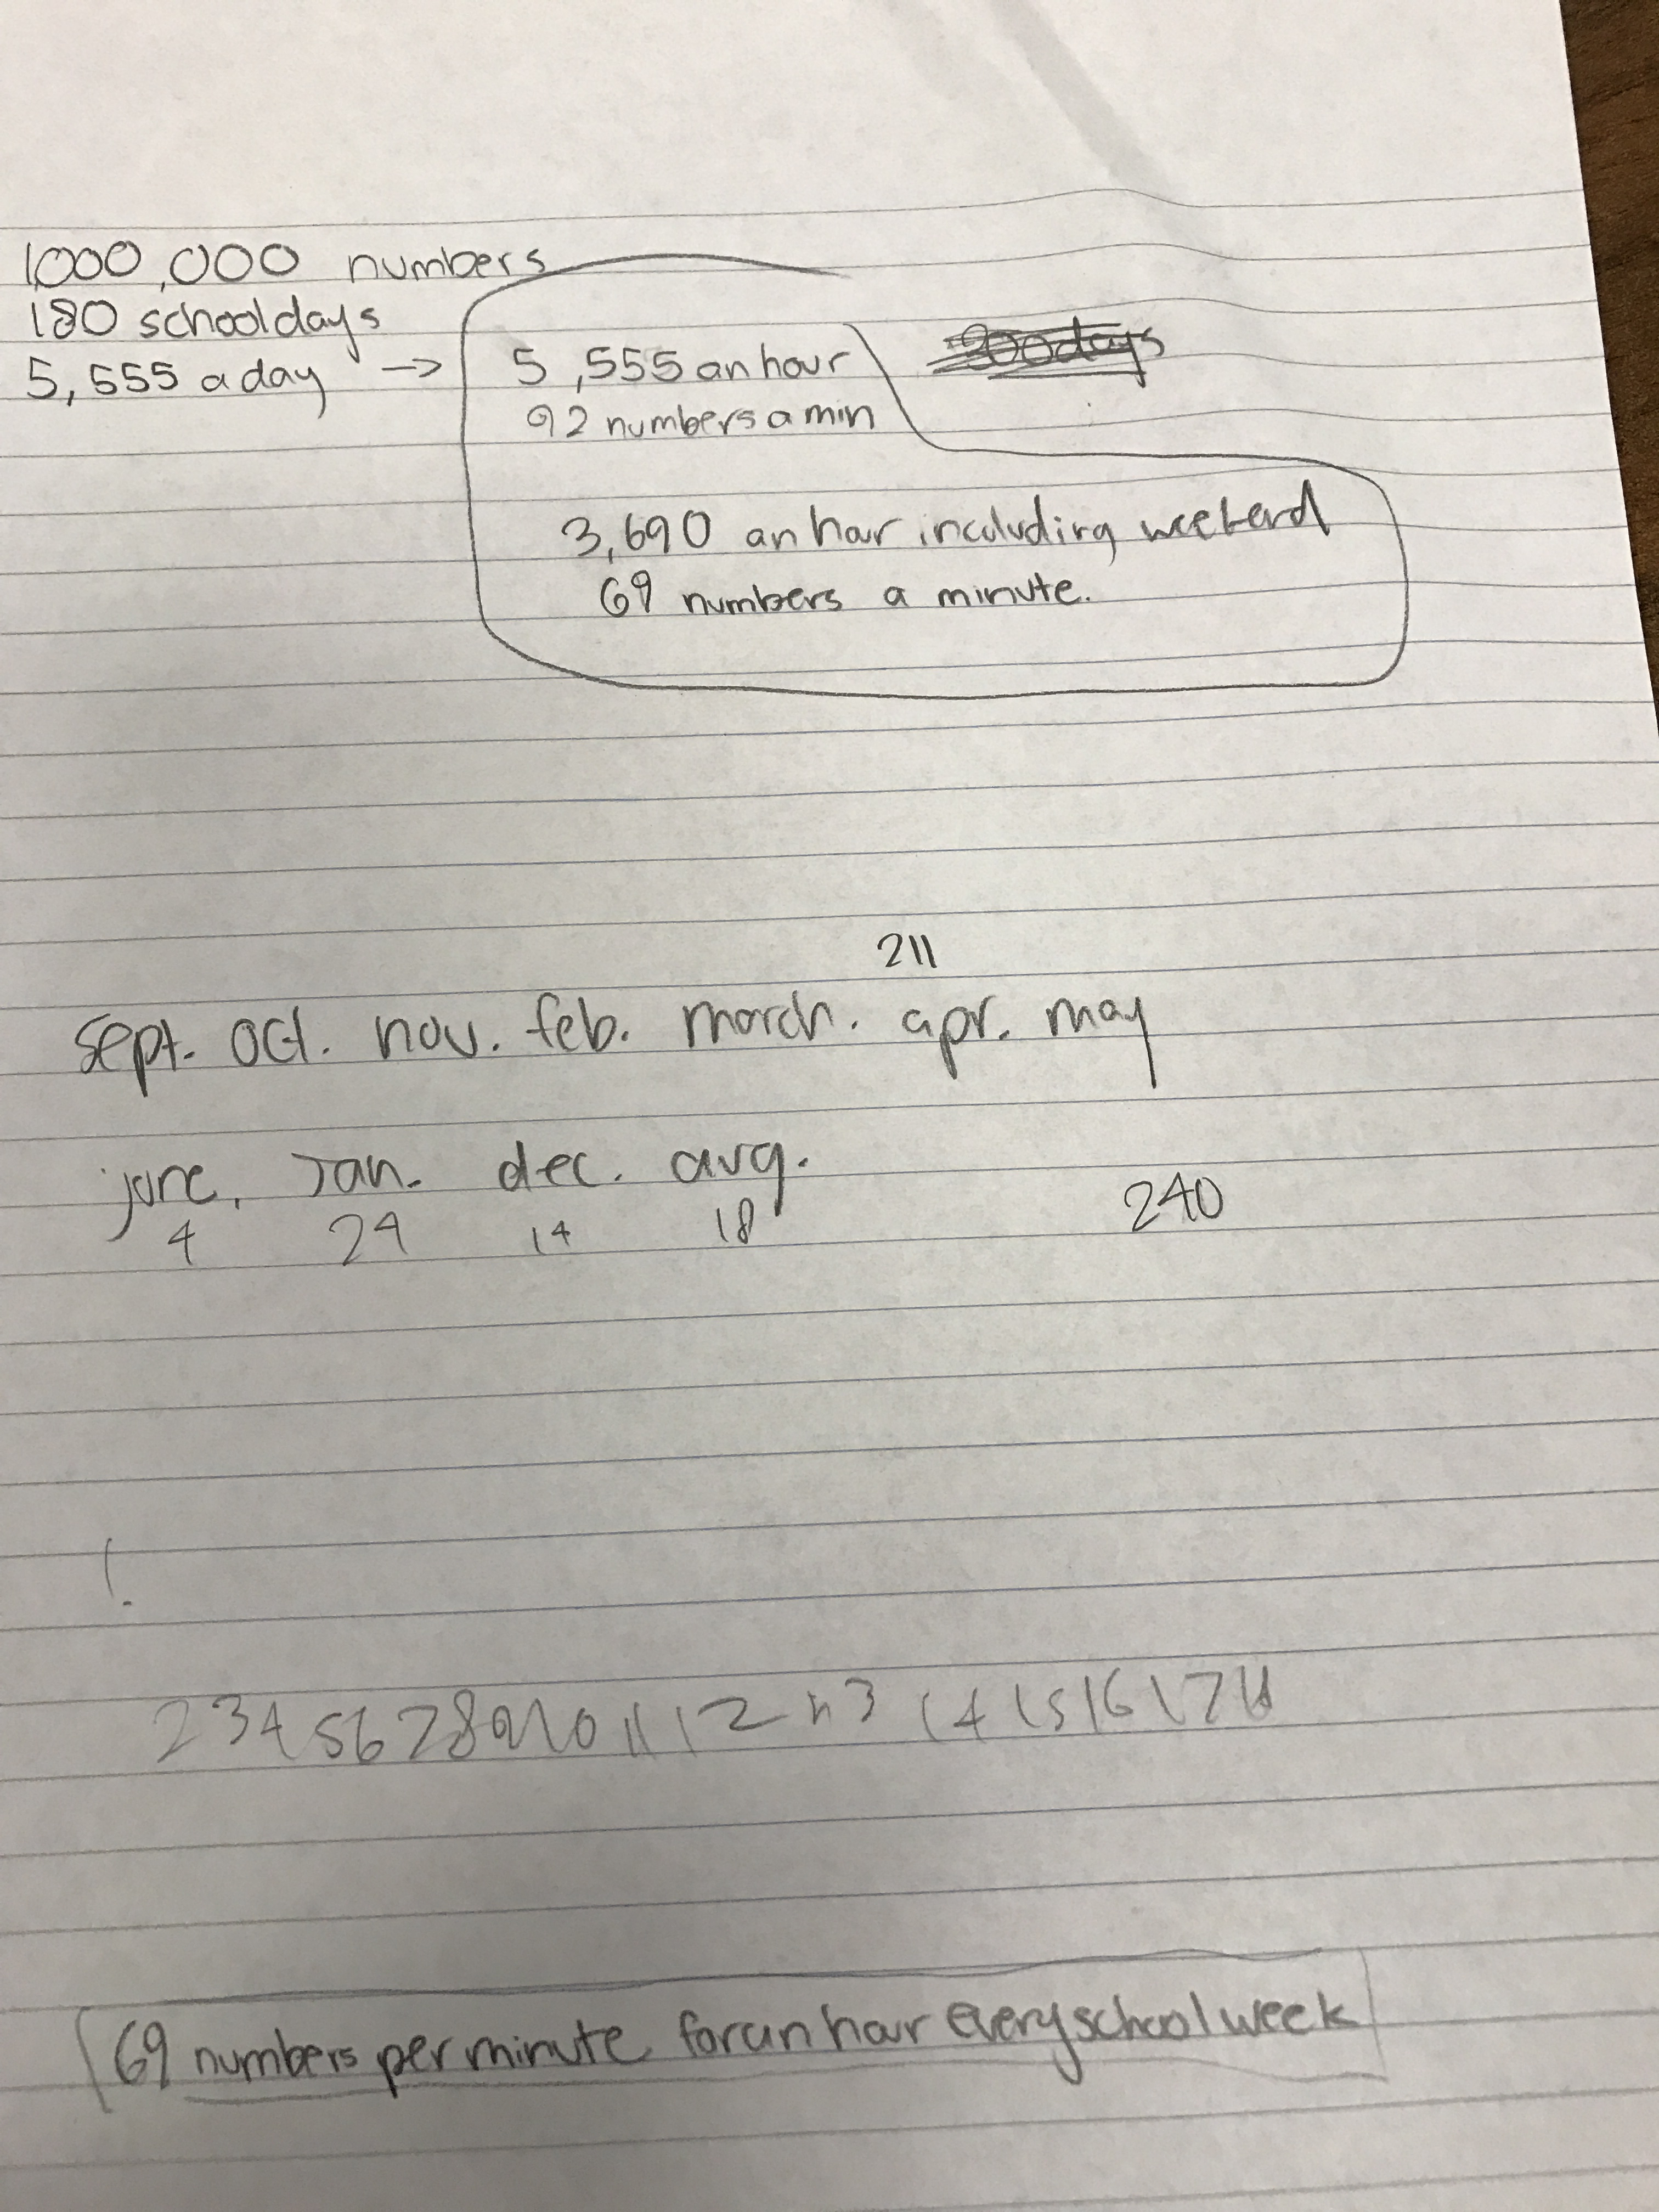 1000,000 numbers
180 schooldays
5,555 a day → 5,555 an hour
300days
92 numbers a min
3,690 an hour including weekend
69 numbers a minute.
211
Sept. Oct. nov. feb. march. apr. may
june, Jan. dec. aug.
4 24 14 18
240
2 3 4 5 6 7 8 9 10 11 12 13 14 15 16 17
69 numbers per minute for an hour every school week